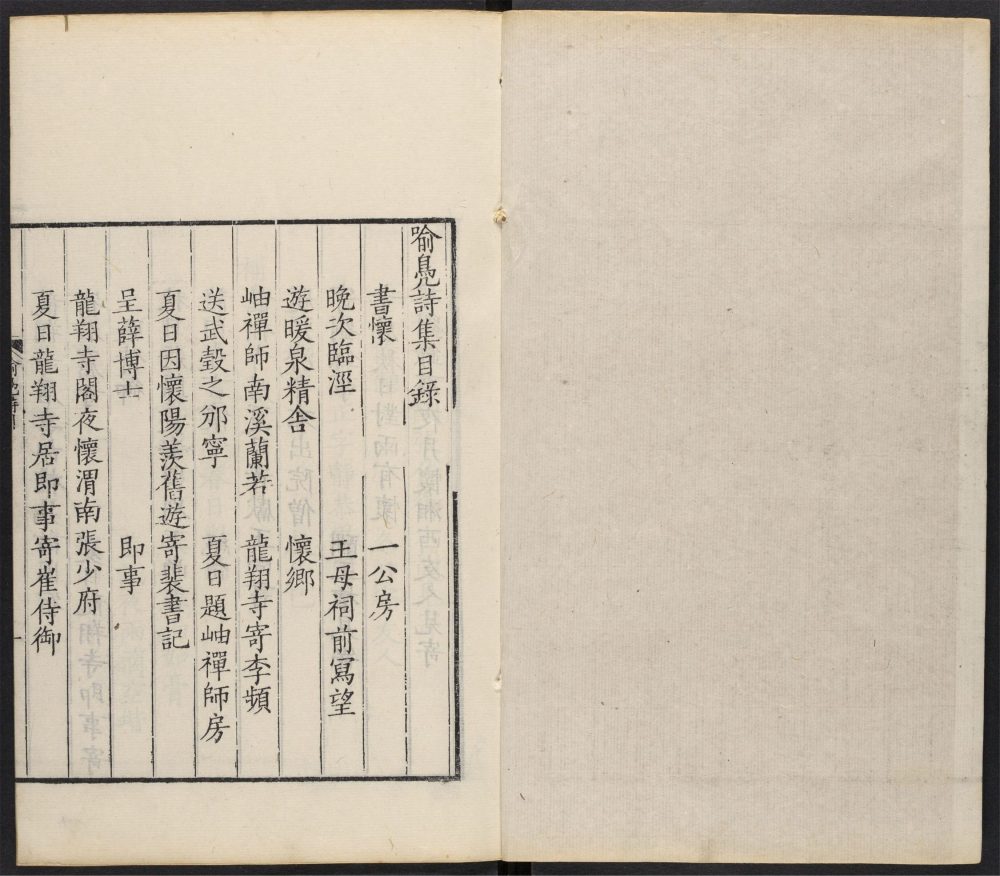 喻鳧詩集目錄
書懷 一公房
晚次臨涇 王母祠前寫望
遊暖泉精舍 懷鄉
岫禪師南溪蘭若 龍翔寺寄李頻
送武瑴之邠寧 夏日題岫禪師房
夏日因懷陽羨舊遊寄裴書記
呈薛博士 即事
龍翔寺閣夜懷渭南張少府
夏日龍翔寺居即事寄崔侍御